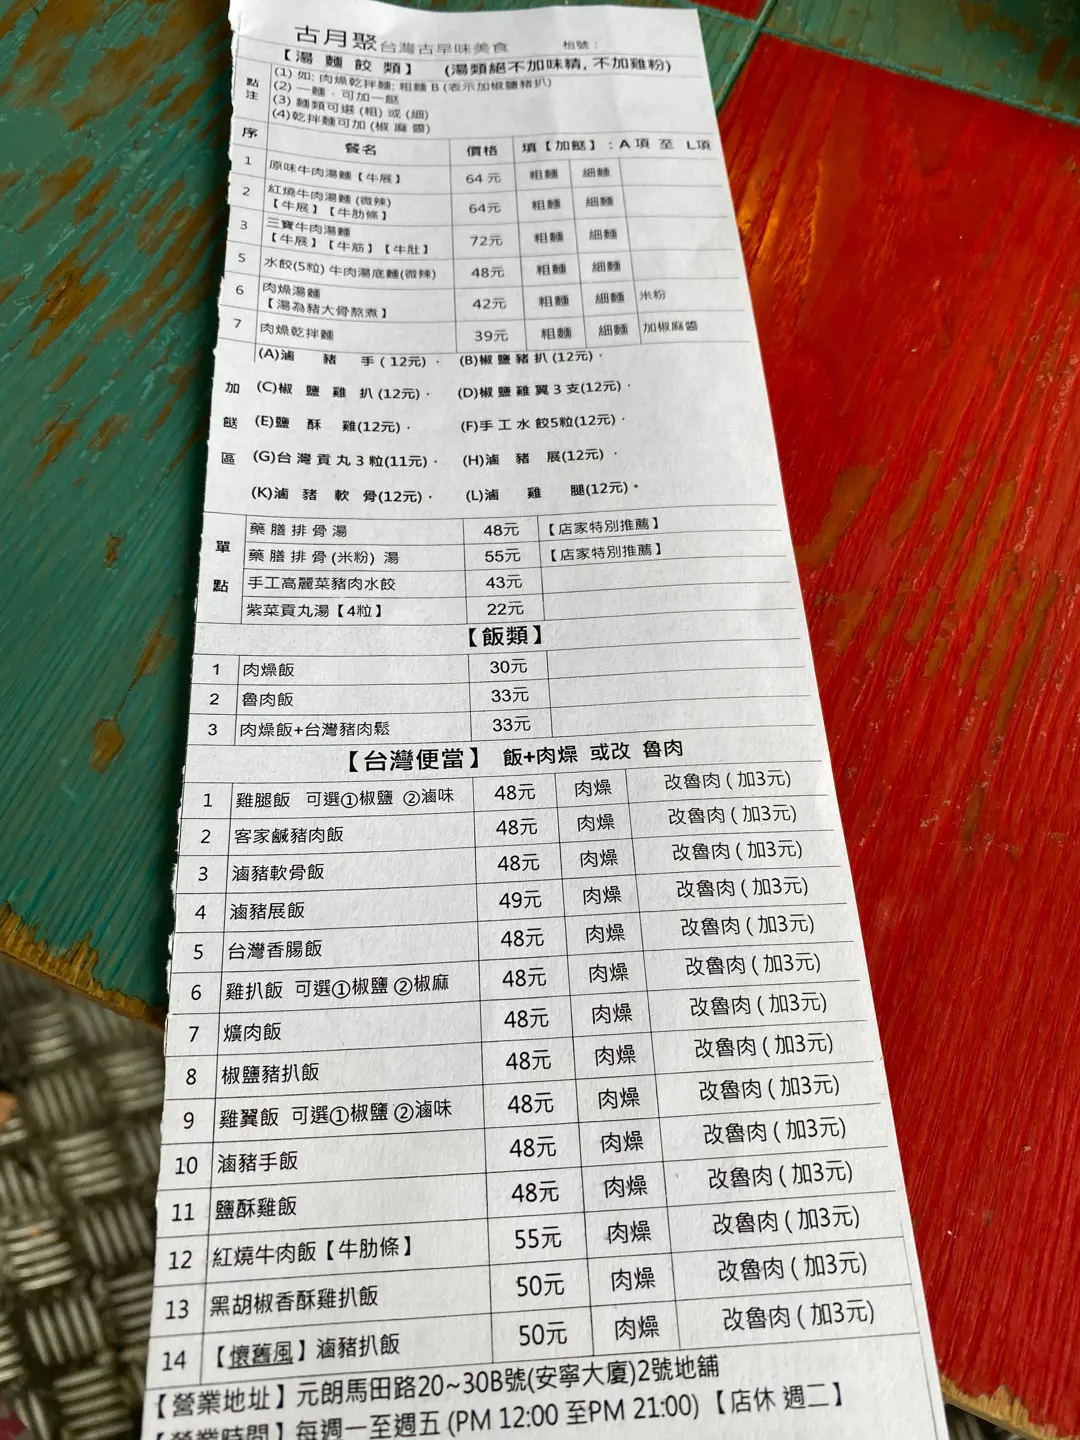 古月聚台灣古早味美食 枱號：
【湯麵餃類】 (湯類絕不加味精, 不加雞粉)
點注
(1) 如: 肉燥乾拌麵; 粗麵 B (表示加椒鹽豬扒)
(2) 一麵，可加一餸
(3) 麵類可選 (粗) 或 (細)
(4)乾拌麵可加 (椒麻醬)
序 餐名 價格 填【加餸】：A 項 至 L項
1 原味牛肉湯麵【牛展】 64 元 粗麵 細麵
2 紅燒牛肉湯麵 (微辣) 64元 粗麵 細麵
【牛展】【牛肋條】
3 三寶牛肉湯麵 72元 粗麵 細麵
【牛展】【牛筋】【牛肚】
5 水餃(5粒) 牛肉湯底麵(微辣) 48元 粗麵 細麵
6 肉燥湯麵 42元 粗麵 細麵 米粉
【湯為豬大骨熬煮】
7 肉燥乾拌麵 39元 粗麵 細麵 加椒麻醬
加餸區
(A)滷 豬 手 ( 12元)． (B)椒 鹽 豬 扒 (12元)．
(C)椒 鹽 雞 扒 (12元)． (D)椒 鹽 雞 翼 3 支(12元)．
(E)鹽 酥 雞(12元)． (F)手 工 水 餃5粒(12元)．
(G)台 灣 貢 丸 3 粒(11元)． (H)滷 豬 展(12元) ．
(K)滷 豬 軟 骨(12元)． (L)滷 雞 腿(12元)。
單點
藥 膳 排 骨 湯 48元 【店家特別推薦】
藥 膳 排 骨 (米粉) 湯 55元 【店家特別推薦】
手工高麗菜豬肉水餃 43元
紫菜貢丸湯【4粒】 22元
【飯類】
1 肉燥飯 30元
2 魯肉飯 33元
3 肉燥飯+台灣豬肉鬆 33元
【台灣便當】 飯+肉燥 或改 魯肉
1 雞腿飯 可選①椒鹽 ②滷味 48元 肉燥 改魯肉 ( 加3元)
2 客家鹹豬肉飯 48元 肉燥 改魯肉 ( 加3元)
3 滷豬軟骨飯 48元 肉燥 改魯肉 ( 加3元)
4 滷豬展飯 49元 肉燥 改魯肉 ( 加3元)
5 台灣香腸飯 48元 肉燥 改魯肉 ( 加3元)
6 雞扒飯 可選①椒鹽 ②椒麻 48元 肉燥 改魯肉 ( 加3元)
7 爌肉飯 48元 肉燥 改魯肉 ( 加3元)
8 椒鹽豬扒飯 48元 肉燥 改魯肉 ( 加3元)
9 雞翼飯 可選①椒鹽 ②滷味 48元 肉燥 改魯肉 ( 加3元)
10 滷豬手飯 48元 肉燥 改魯肉 ( 加3元)
11 鹽酥雞飯 48元 肉燥 改魯肉 ( 加3元)
12 紅燒牛肉飯【牛肋條】 55元 肉燥 改魯肉 ( 加3元)
13 黑胡椒香酥雞扒飯 50元 肉燥 改魯肉 ( 加3元)
14 【懷舊風】滷豬扒飯 50元 肉燥 改魯肉 ( 加3元)
【營業地址】元朗馬田路20~30B號(安寧大廈)2號地舖
【營業時間】每週一至週五 (PM 12:00 至PM 21:00) 【店休 週二】